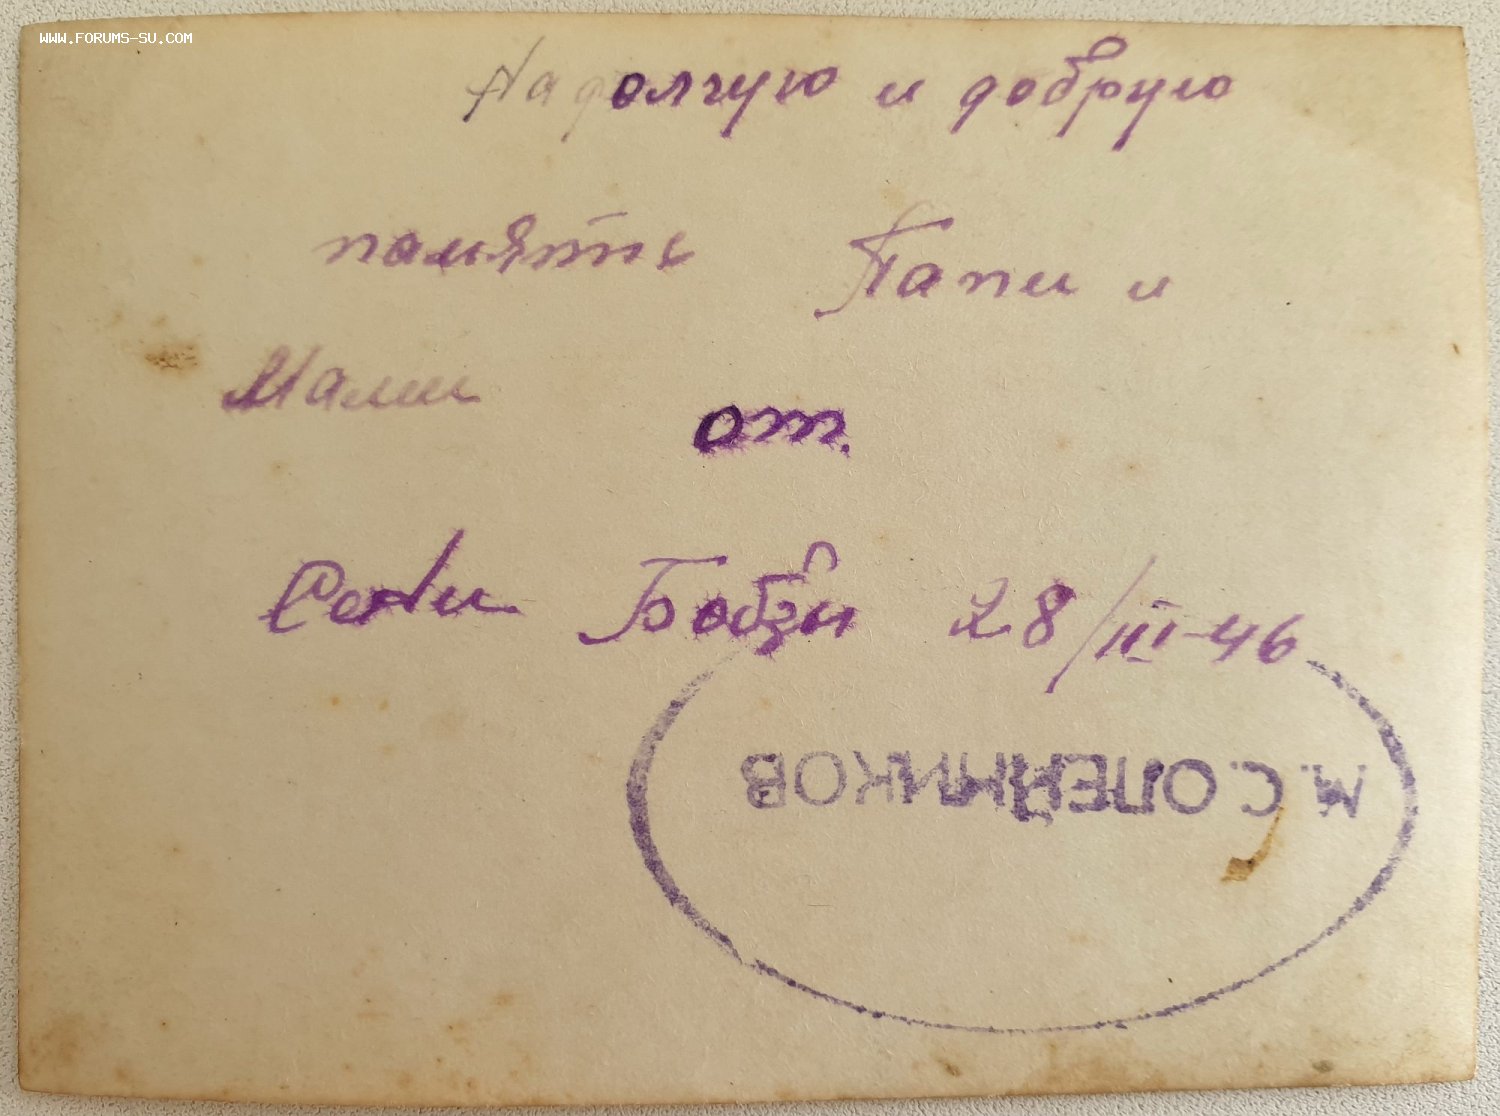 WWW.FORUMS-SU.COM
На долгую и добрую
память Папи и
Мами от.
Сени Бобзи 28/III-46
М. С. ОЛЕЙНИКОВ